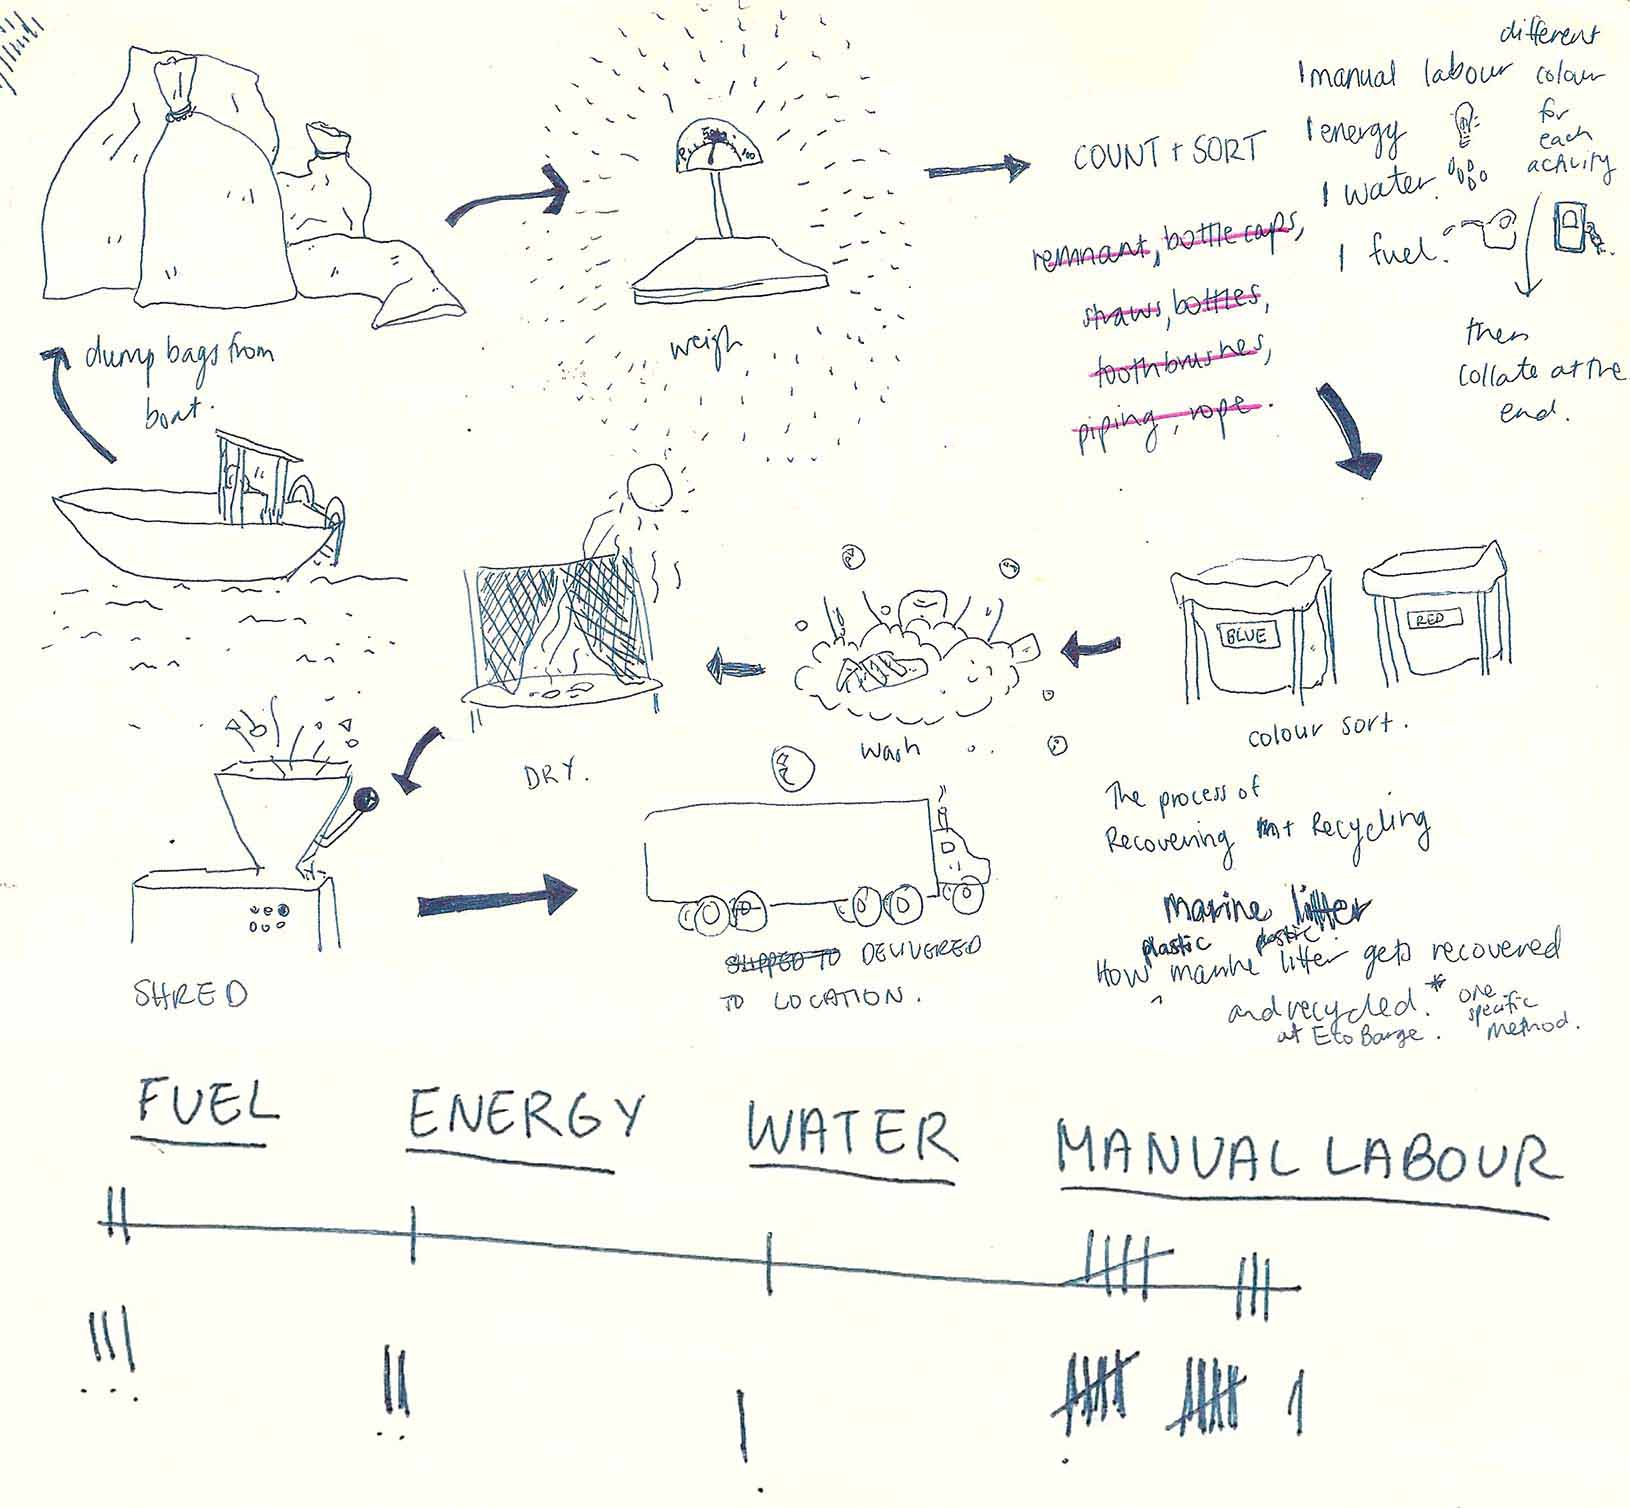 dump bags from
boat.
weigh
50
100
COUNT + SORT
remnant, bottle caps,
straws, bottles,
toothbrushes,
piping, rope.
different
colour
for
each
activity
1 manual labour
1 energy
1 water.
1 fuel.
then
collate at the
end.
BLUE
RED
colour sort.
wash
DRY.
SHRED
SHIPPED TO DELIVERED
TO LOCATION.
The process of
Recovering + Recycling
marine litter
plastic plastic
How marine litter gets recovered
and recycled. *
at Eco Barge.
one
specific
method.
FUEL
ENERGY
WATER
MANUAL LABOUR